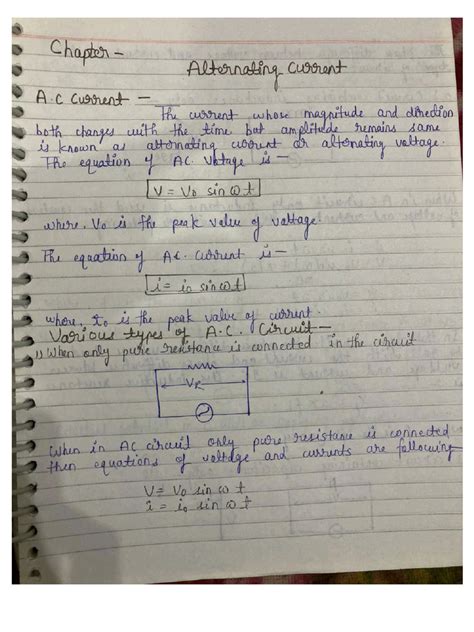 Chapter -
Alternating Current
A.C Current -
The current whose magnitude and direction
both changes with the time but amplitude remains same
is known as alternating current or alternating voltage.
The equation of AC. Voltage is -
V = V₀ sin ω t
where, V₀ is the peak value of voltage.
The equation of AC. current is -
i = i₀ sin ω t
where, i₀ is the peak value of current.
Various types of A.C. Circuit -
1) When only pure resistance is connected in the circuit
VR
When in AC circuit only pure resistance is connected
then equations of voltage and currents are following
V = V₀ sin ω t
i = i₀ sin ω t